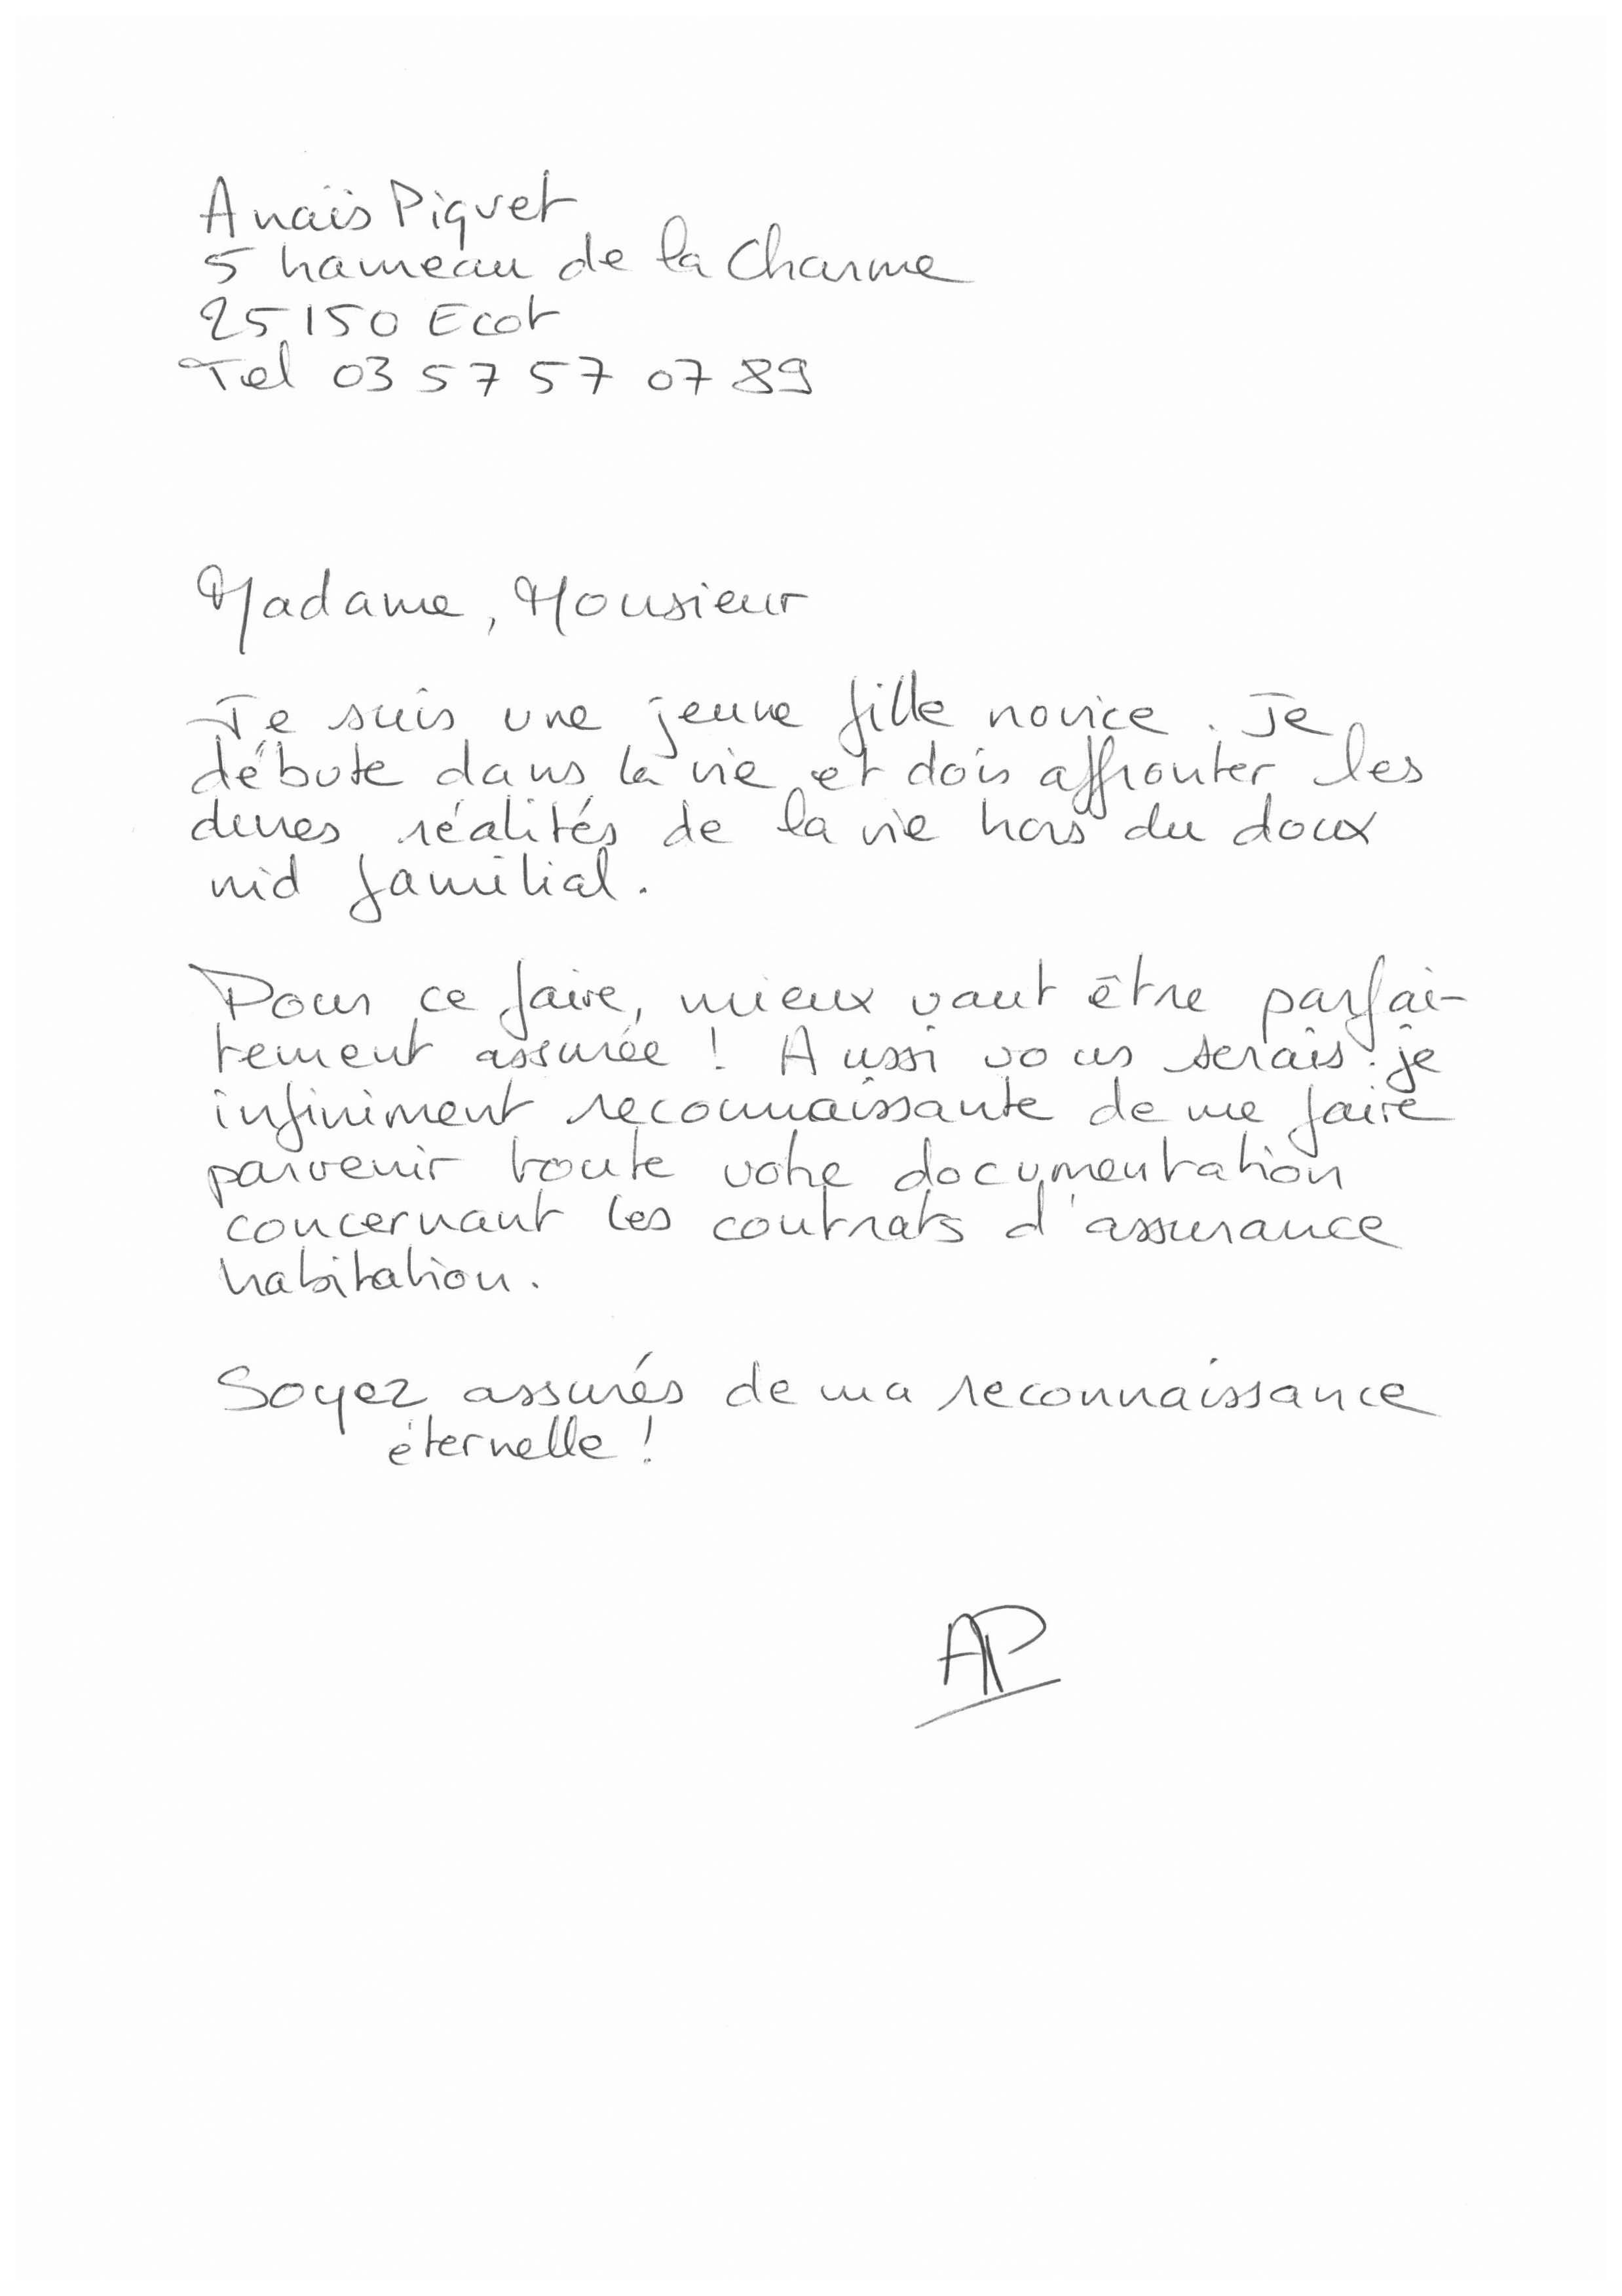 Anaïs Piquet
5 hameau de la Charme
25150 Ecot
Tel 03 57 57 07 89
Madame, Monsieur
Je suis une jeune fille novice. Je
débute dans la vie et dois affronter les
dures réalités de la vie hors du doux
nid familial.
Pour ce faire, mieux vaut être parfai-
tement assurée ! Aussi vous serais-je
infiniment reconnaissante de me faire
parvenir toute votre documentation
concernant les contrats d'assurance
habitation.
Soyez assurés de ma reconnaissance
éternelle !
AP